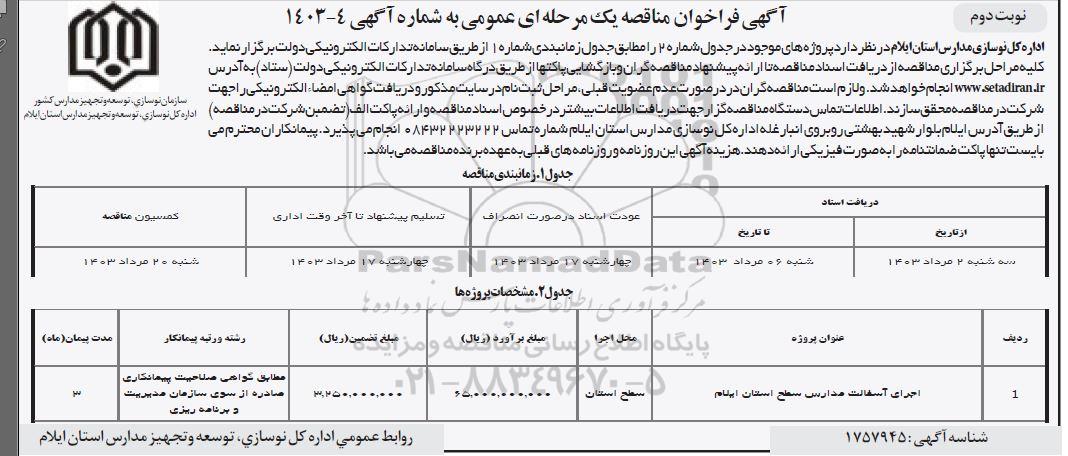 نوبت دوم
آگهی فراخوان مناقصه یک مرحله ای عمومی به شماره آگهی ۴-۱۴۰۳
سازمان نوسازی، توسعه و تجهیز مدارس کشور
اداره کل نوسازی، توسعه و تجهیز مدارس استان ایلام
اداره کل نوسازی مدارس استان ایلام در نظر دارد پروژه های موجود در جدول شماره ۲ را مطابق جدول زمانبندی شماره ۱ از طریق سامانه تدارکات الکترونیکی دولت برگزار نماید.
کلیه مراحل برگزاری مناقصه از دریافت اسناد مناقصه تا ارائه پیشنهاد مناقصه گران و بازگشایی پاکتها از طریق درگاه سامانه تدارکات الکترونیکی دولت (ستاد) به آدرس
www.setadiran.ir انجام خواهد شد. ولازم است مناقصه گران در صورت عدم عضویت قبلی، مراحل ثبت نام در سایت مذکور و دریافت گواهی امضاء الکترونیکی را جهت
شرکت در مناقصه محقق سازند. اطلاعات تماس دستگاه مناقصه گزار جهت دریافت اطلاعات بیشتر در خصوص اسناد مناقصه و ارائه پاکت الف (تضمین شرکت در مناقصه)
از طریق آدرس ایلام بلوار شهید بهشتی روبروی انبار غله اداره کل نوسازی مدارس استان ایلام شماره تماس ۰۸۴۳۲۲۲۳۲۲۲ انجام می پذیرد. پیمانکاران محترم می
بایست تنها پاکت ضمانتنامه را به صورت فیزیکی ارائه دهند. هزینه آگهی این روزنامه و روزنامه های قبلی به عهده برنده مناقصه می باشد.
جدول ۱. زمانبندی مناقصه
دریافت اسناد
از تاریخ
تا تاریخ
عودت اسناد درصورت انصراف
تسلیم پیشنهاد تا آخر وقت اداری
کمسیون مناقصه
سه شنبه ۲ مرداد ۱۴۰۳
شنبه ۰۶ مرداد ۱۴۰۳
چهارشنبه ۱۷ مرداد ۱۴۰۳
چهارشنبه ۱۷ مرداد ۱۴۰۳
شنبه ۲۰ مرداد ۱۴۰۳
ParsNamadData
مرکز فرآوری اطلاعات پارس نماد داده ها
پایگاه اطلاع رسانی مناقصه و مزایده
۰۲۱-۸۸۳۴۹۶۷۰-۵
جدول ۲. مشخصات پروژه ها
ردیف
عنوان پروژه
محل اجرا
مبلغ برآورد (ریال)
مبلغ تضمین (ریال)
رشته ورتبه پیمانکار
مدت پیمان(ماه)
1
اجرای آسفالت مدارس سطح استان ایلام
سطح استان
۶۵,۰۰۰,۰۰۰,۰۰۰
۳,۲۵۰,۰۰۰,۰۰۰
مطابق گواهی صلاحیت پیمانکاری
صادره از سوی سازمان مدیریت
و برنامه ریزی
۳
شناسه آگهی: ۱۷۵۷۹۴۵
روابط عمومي اداره كل نوسازي، توسعه و تجهيز مدارس استان ايلام